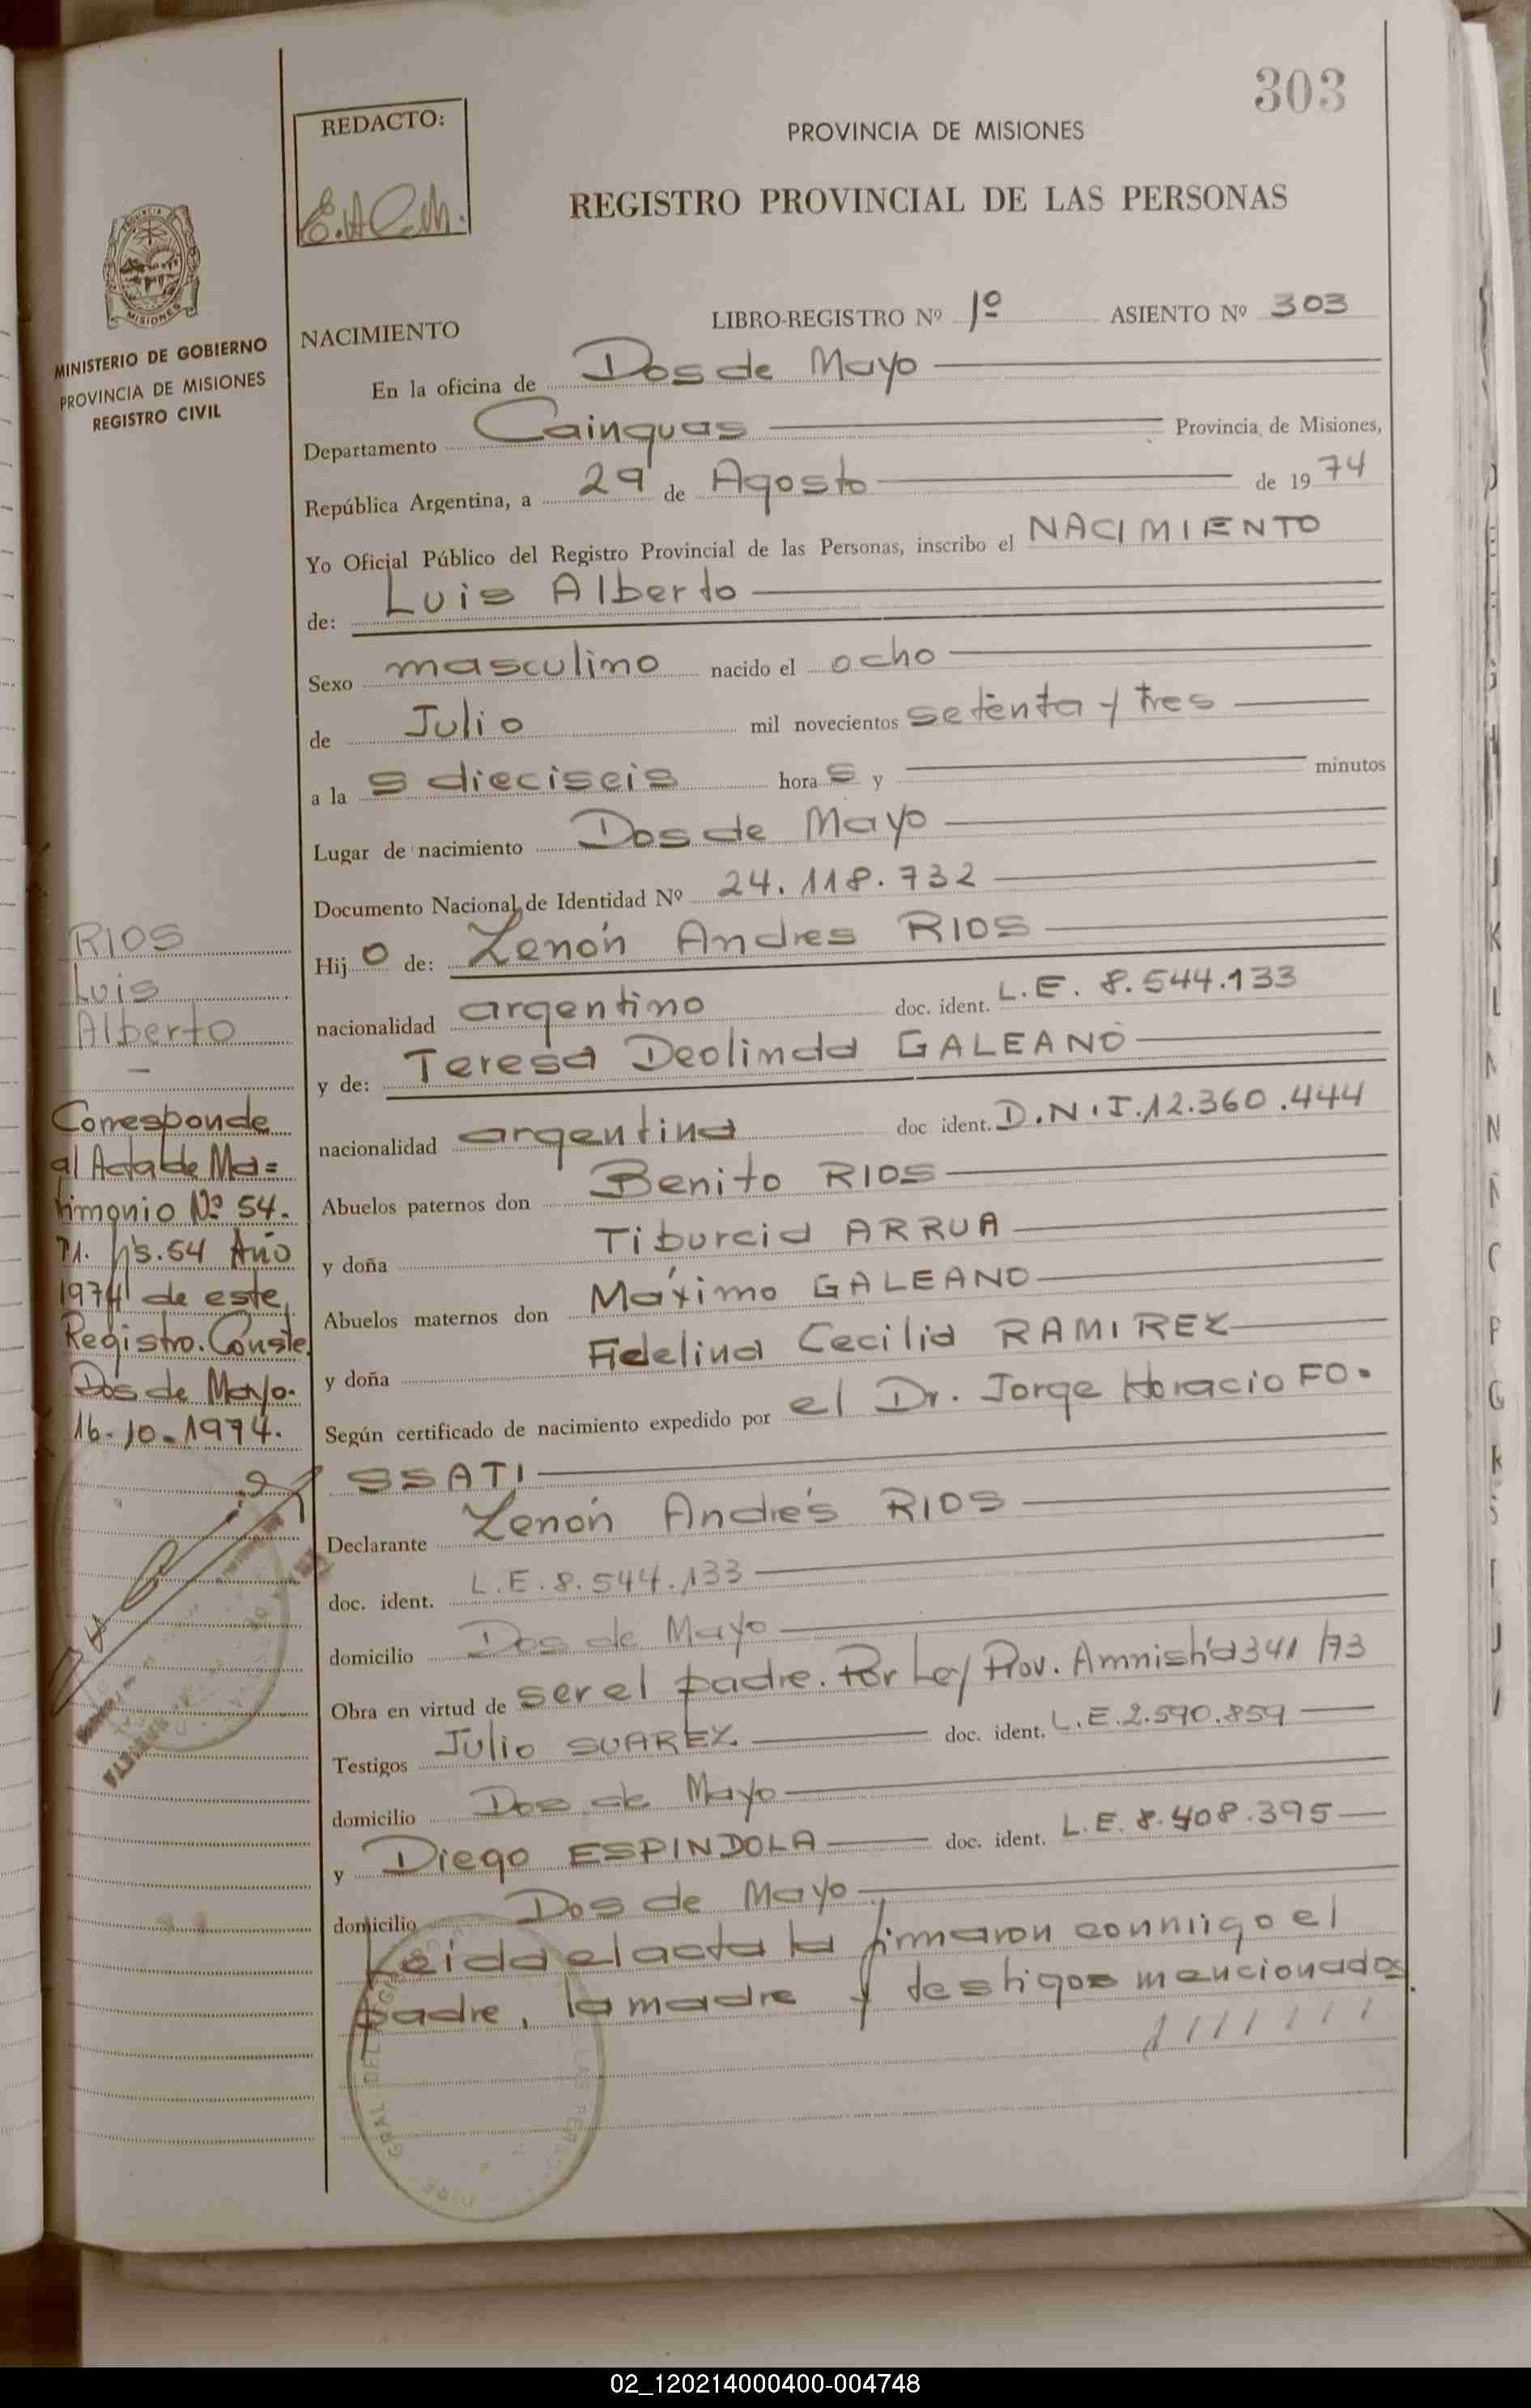 303
REDACTO:
E.A.C.M.
PROVINCIA DE MISIONES
REGISTRO PROVINCIAL DE LAS PERSONAS
MISIONES
MINISTERIO DE GOBIERNO
PROVINCIA DE MISIONES
REGISTRO CIVIL
NACIMIENTO LIBRO-REGISTRO Nº 1º ASIENTO Nº 303
En la oficina de Dos de Mayo
Departamento Cainguas Provincia de Misiones,
República Argentina, a 29 de Agosto de 1974
Yo Oficial Público del Registro Provincial de las Personas, inscribo el NACIMIENTO
de: Luis Alberto
Sexo masculino nacido el ocho
de Julio mil novecientos setenta y tres
a la s dieciseis hora s y minutos
Lugar de nacimiento Dos de Mayo
Documento Nacional de Identidad Nº 24.118.732
Hij o de: Zenón Andres RIOS
nacionalidad argentino doc. ident. L.E. 8.544.133
y de: Teresa Deolinda GALEANO
nacionalidad argentina doc ident. D.N.I.12.360.444
Abuelos paternos don Benito RIOS
y doña Tiburcia ARRUA
Abuelos maternos don Máximo GALEANO
y doña Fidelina Cecilia RAMIREZ
Según certificado de nacimiento expedido por el Dr. Jorge Horacio FO-
SSATI
Declarante Zenón Andrés RIOS
doc. ident. L.E.8.544.133
domicilio Dos de Mayo
Obra en virtud de ser el padre. Por Ley Prov. Amnistía 341/73
Testigos Julio SUAREZ doc. ident. L.E.2.590.859
domicilio Dos de Mayo
y Diego ESPINDOLA doc. ident. L.E. 8.408.395
domicilio Dos de Mayo
Leida el acta la firmaron conmigo el
padre, la madre y testigos mencionados.
RIOS
Luis
Alberto
Corresponde
al Acta de Ma=
trimonio Nº 54.
T1. fs.54 Año
1974 de este
Registro. Conste.
Dos de Mayo.
16-10-1974.
02_120214000400-004748